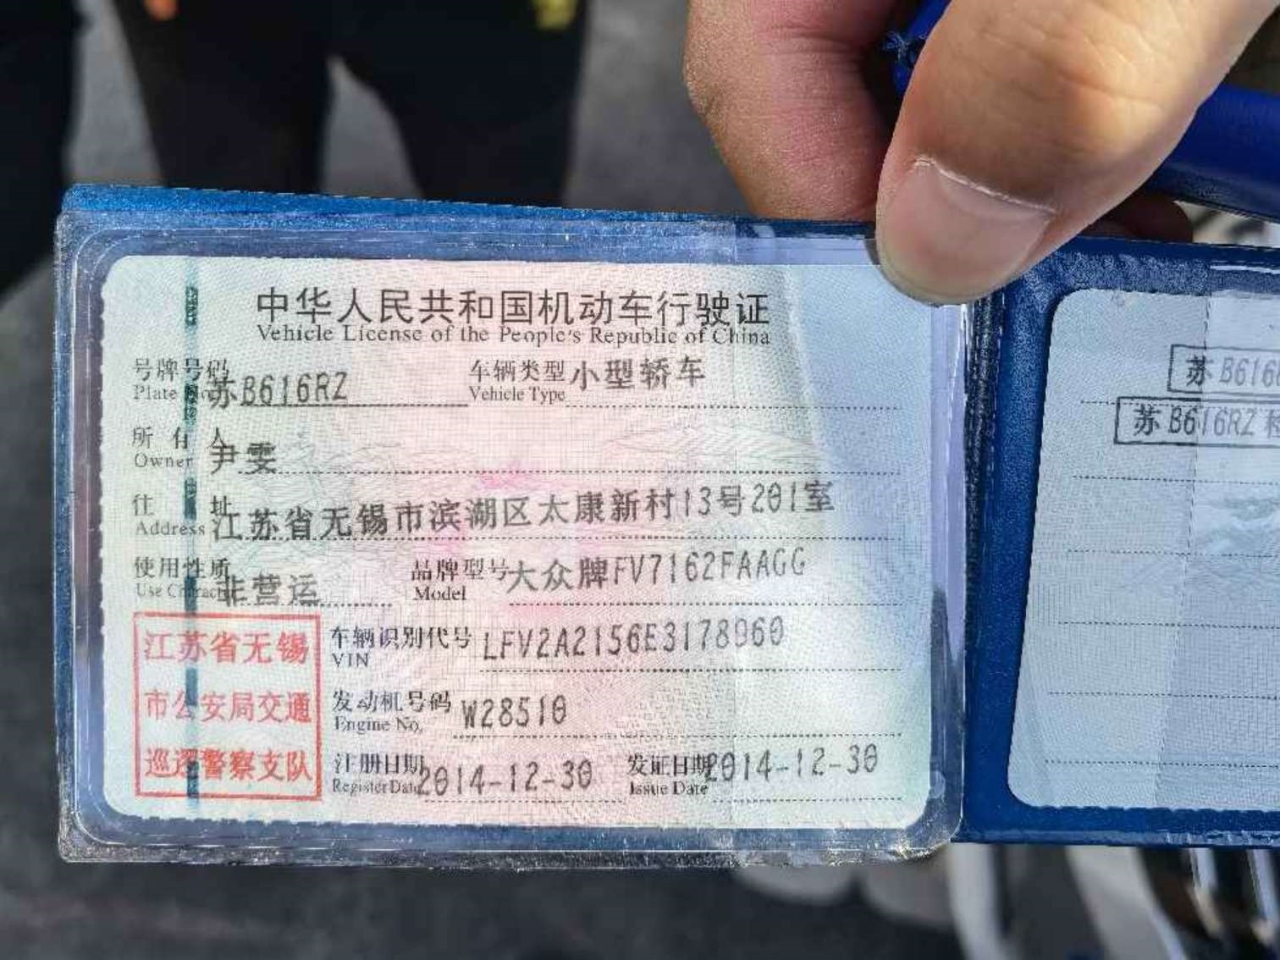 中华人民共和国机动车行驶证
Vehicle License of the People's Republic of China
号牌号码 苏B616RZ 车辆类型 小型轿车
Plate No. Vehicle Type
所有人 尹雯
Owner
住址 江苏省无锡市滨湖区太康新村13号201室
Address
使用性质 非营运 品牌型号 大众牌FV7162FAAGG
Use Character Model
江苏省无锡
市公安局交通
巡逻警察支队
车辆识别代号 LFV2A2156E3178960
VIN
发动机号码 W28510
Engine No.
注册日期 2014-12-30 发证日期 2014-12-30
Register Date Issue Date
苏B616
苏B616RZ